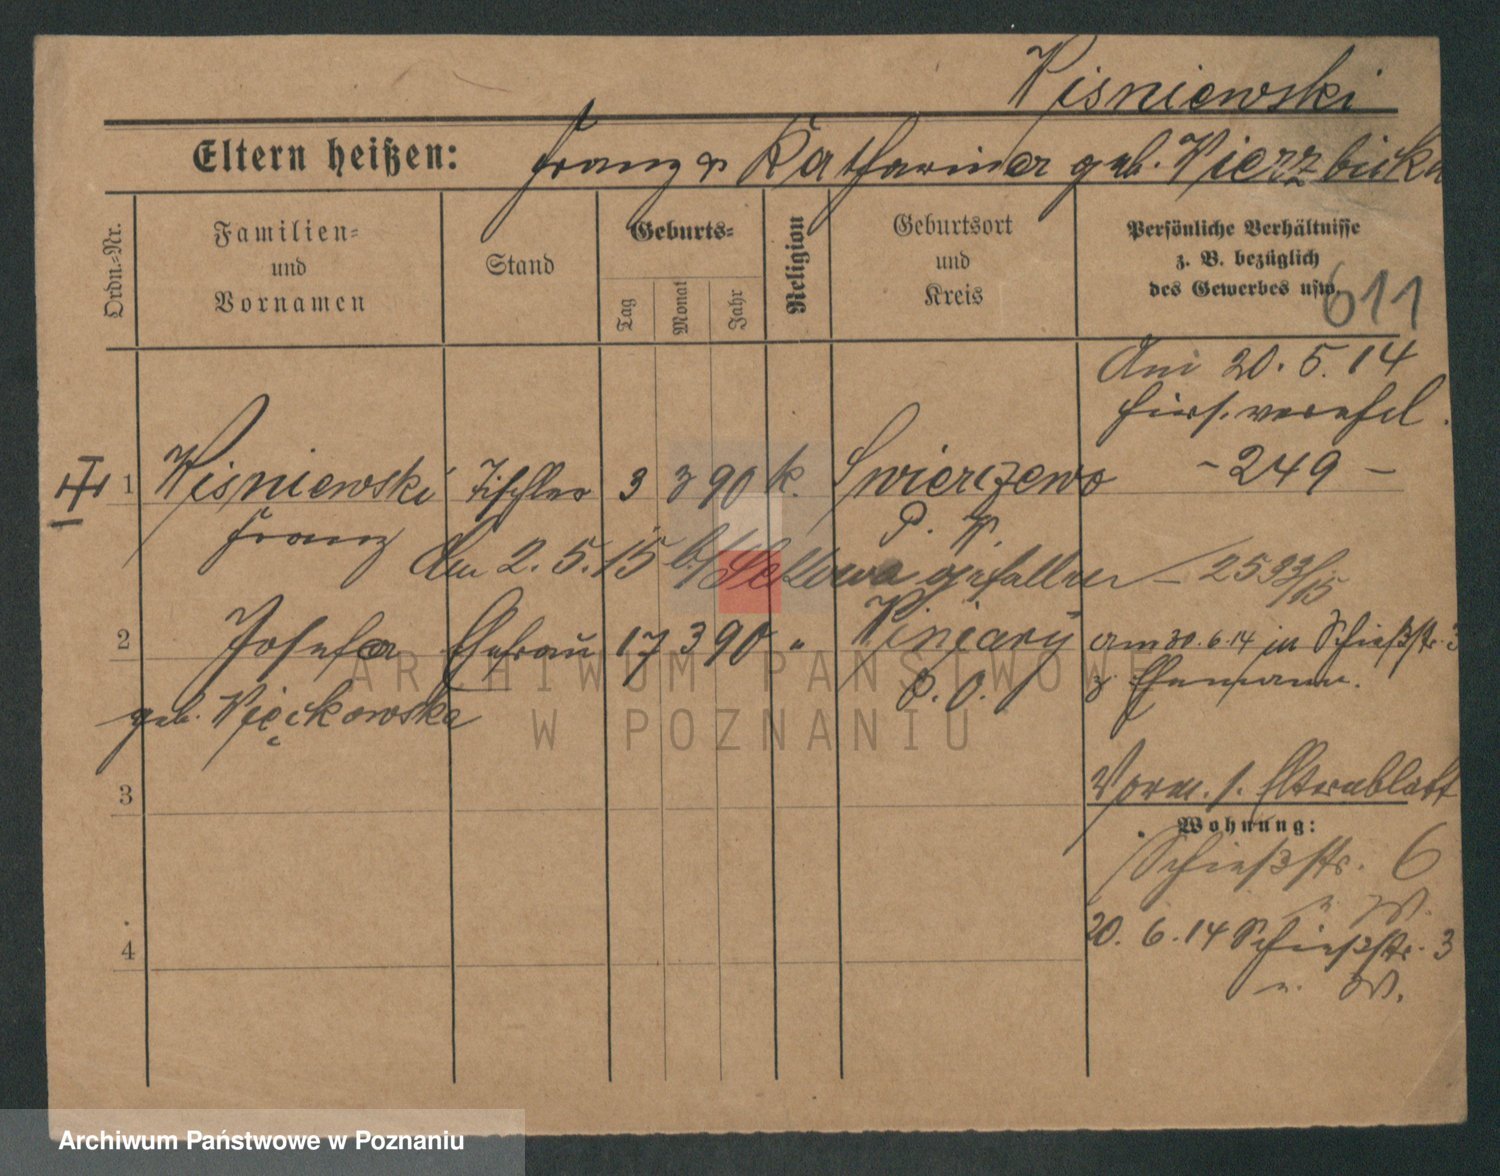 Wisniewski
Eltern heißen: Franz & Katharina geb. Wierzbicka
Ordn.-Nr.
Familien- und Vornamen
Stand
Geburts-
Tag
Monat
Jahr
Religion
Geburtsort und Kreis
Persönliche Verhältnisse
z. B. bezüglich
des Gewerbes usw.
611
Am 20. 5. 14
hies. verehel.
- 249 -
1 Wisniewski Tischler 3 3 90 k. Swierczewo
Franz P. W.
Am 2. 5. 15 gefallen - 2593/15
2 Josefa Ehefrau 17 3 90 " Winiary am 30. 6. 14 in Schießstr. 3
P. O. z. Ehemann.
geb. Więckowska
3
Vorm. s. Elternblatt
Wohnung:
Schießstr. 6
b. W.
4
20. 6. 14 Schießstr. 3
b. W.
ARCHIWUM PAŃSTWOWE
W POZNANIU
Archiwum Państwowe w Poznaniu